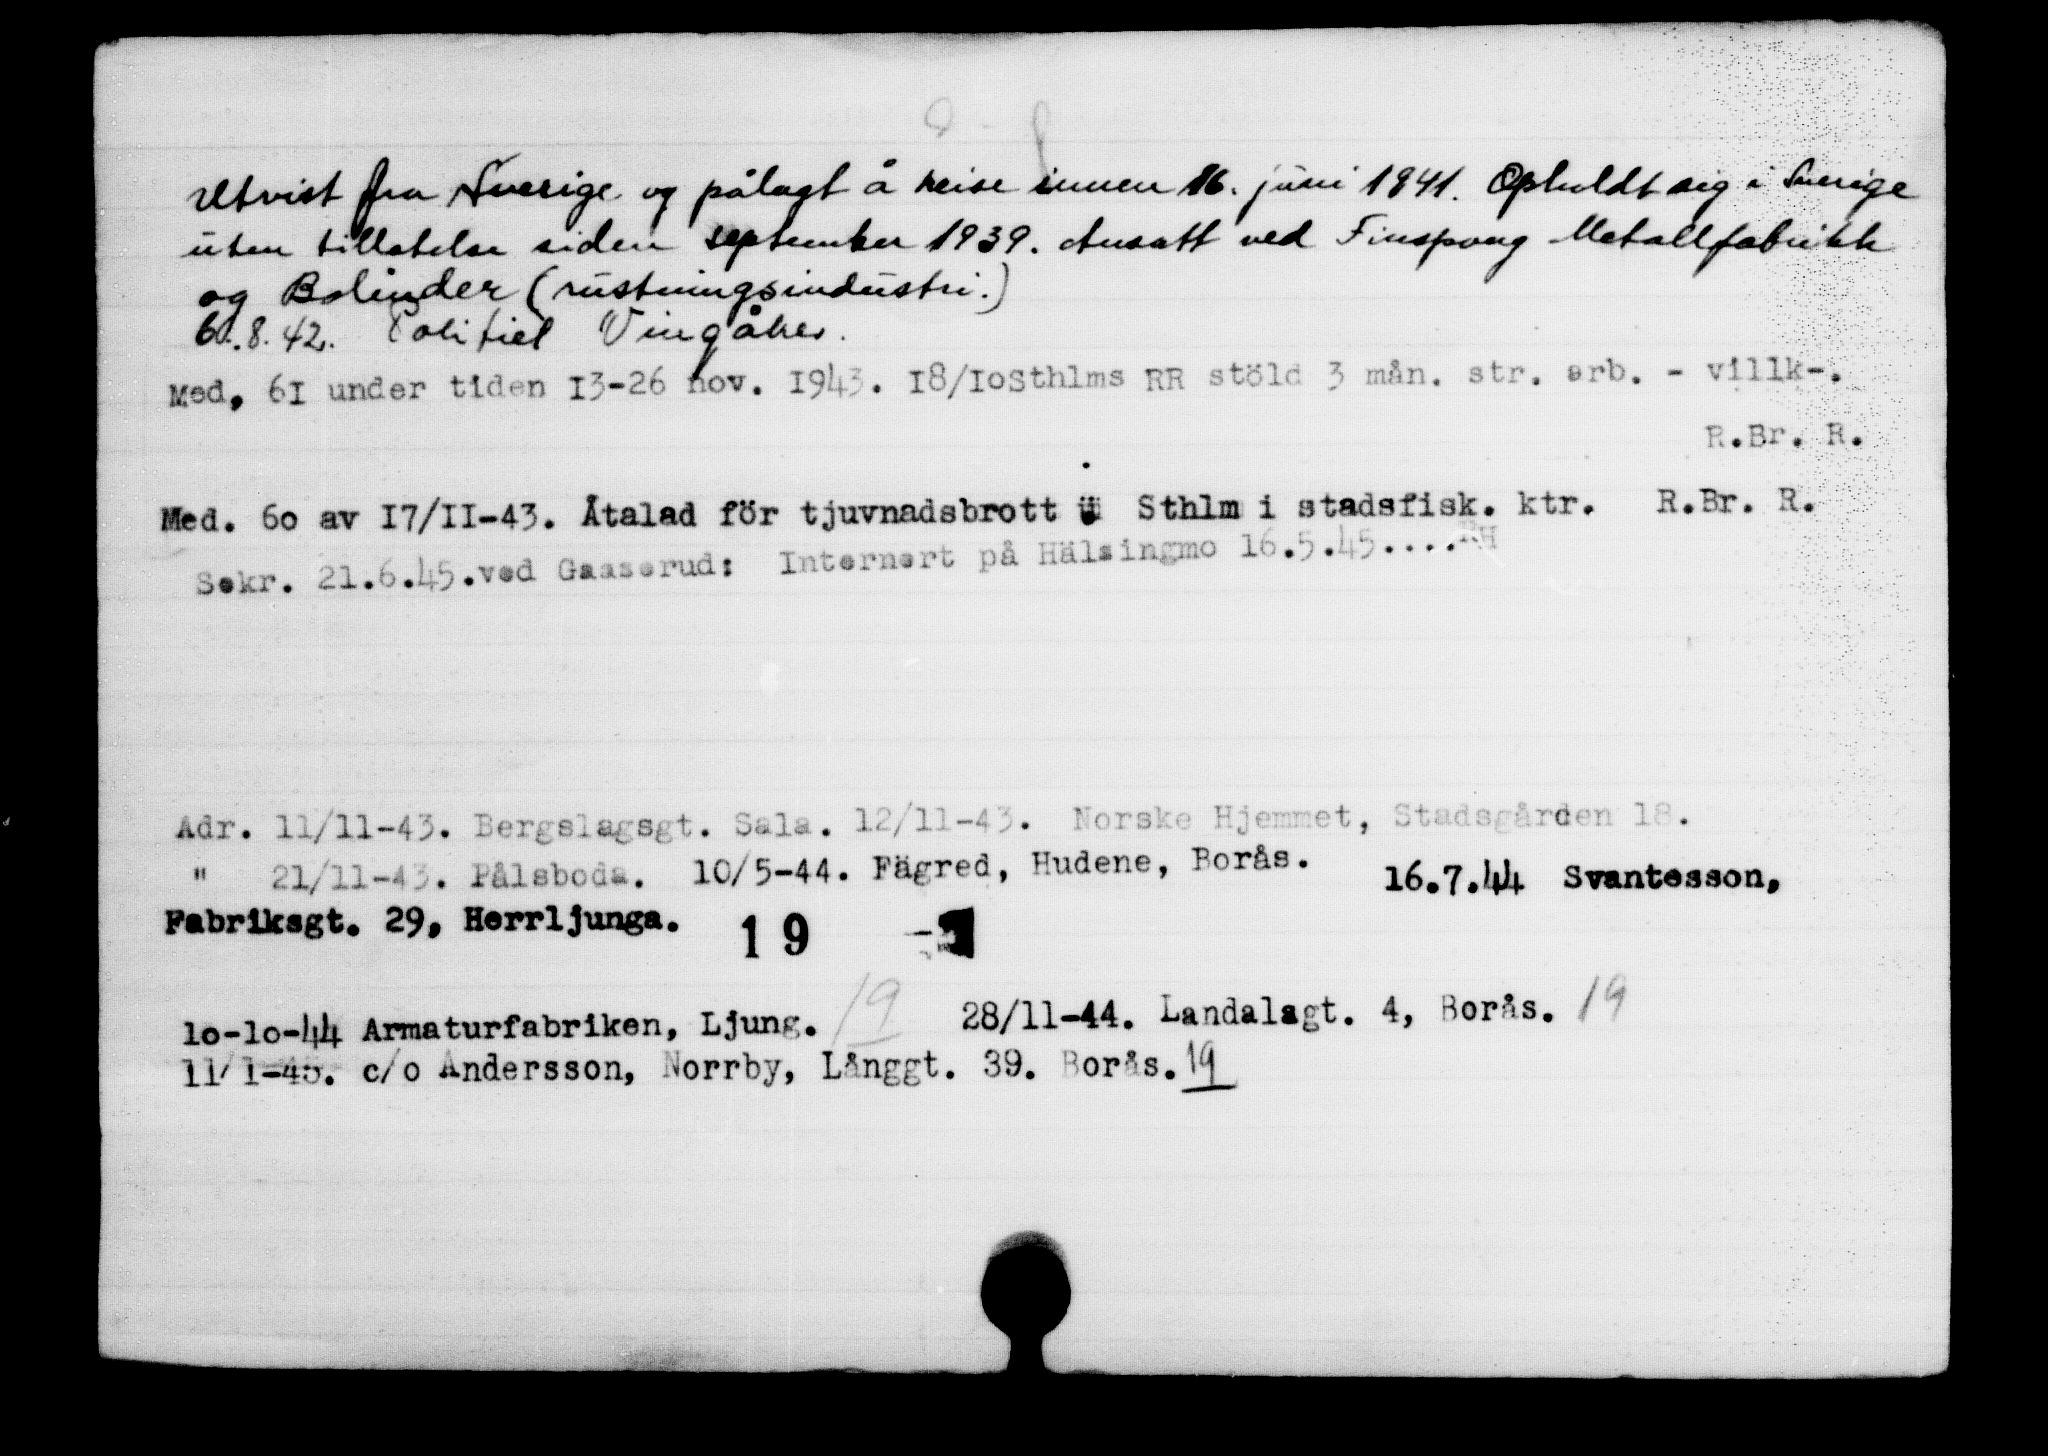 Utvist fra Sverige og pålagt å reise innen 16. juni 1941. Opholdt sig i Sverige
uten tillatelse siden september 1939. Ansatt ved Finspong Metallfabrikk
og Bolinder (rustningsindustri.)
6.8.42. Politiet Vingåker.
Med, 6I under tiden I3-26 nov. I943. I8/IoSthlms RR stöld 3 mån. str. arb. - villk-.
R.Br. R.
Med. 6o av I7/II-43. Åtalad för tjuvnadsbrott i Sthlm i stadsfisk. ktr. R.Br. R.
Sekr. 21.6.45.ved Gaaserud: Internert på Hälsingmo 16.5.45....RH
Adr. 11/11-43. Bergslagsgt. Sala. 12/11-43. Norske Hjemmet, Stadsgården 18.
" 21/11-43. Pålsboda. 10/5-44. Fägred, Hudene, Borås. 16.7.44 Svantesson,
Fabriksgt. 29, Herrljunga. 19
1o-1o-44 Armaturfabriken, Ljung. 19 28/11-44. Landalagt. 4, Borås. 19
11/1-45. c/o Andersson, Norrby, Långgt. 39. Borås. 19